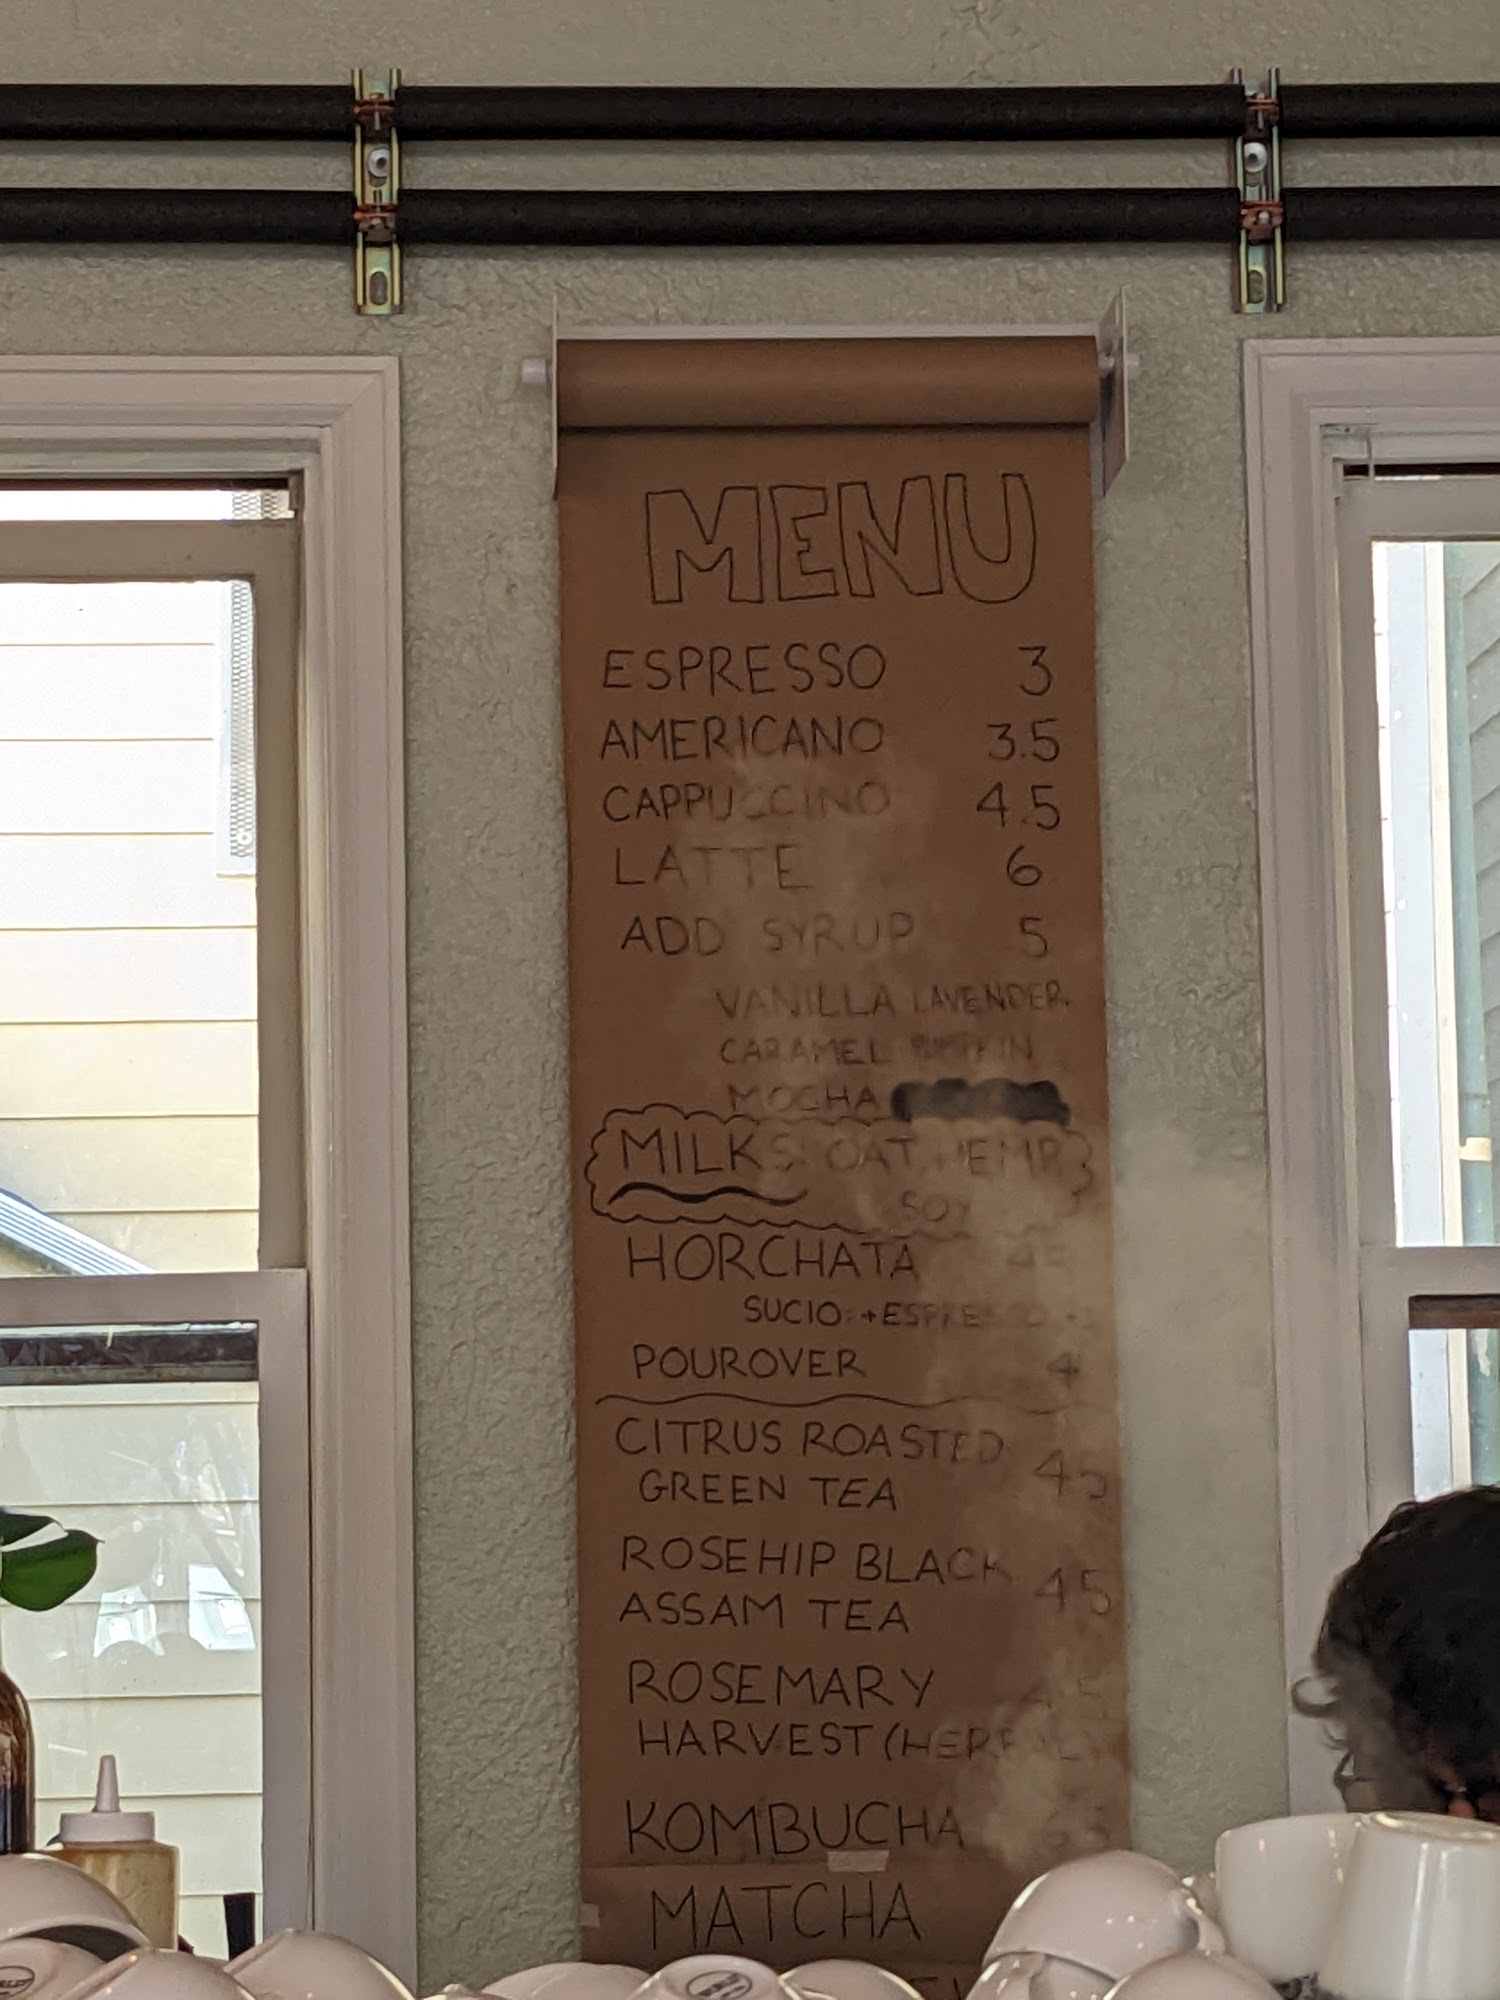 MENU
ESPRESSO 3
AMERICANO 3.5
CAPPUCCINO 4.5
LATTE 6
ADD SYRUP 5
VANILLA LAVENDER
CARAMEL PUMPKIN
MOCHA
MILKS: OAT, HEMP,
SOY
HORCHATA 45
SUCIO: +ESPRESSO
POUROVER 4
CITRUS ROASTED
GREEN TEA 45
ROSEHIP BLACK
ASSAM TEA 45
ROSEMARY 45
HARVEST (HERBAL)
KOMBUCHA
MATCHA